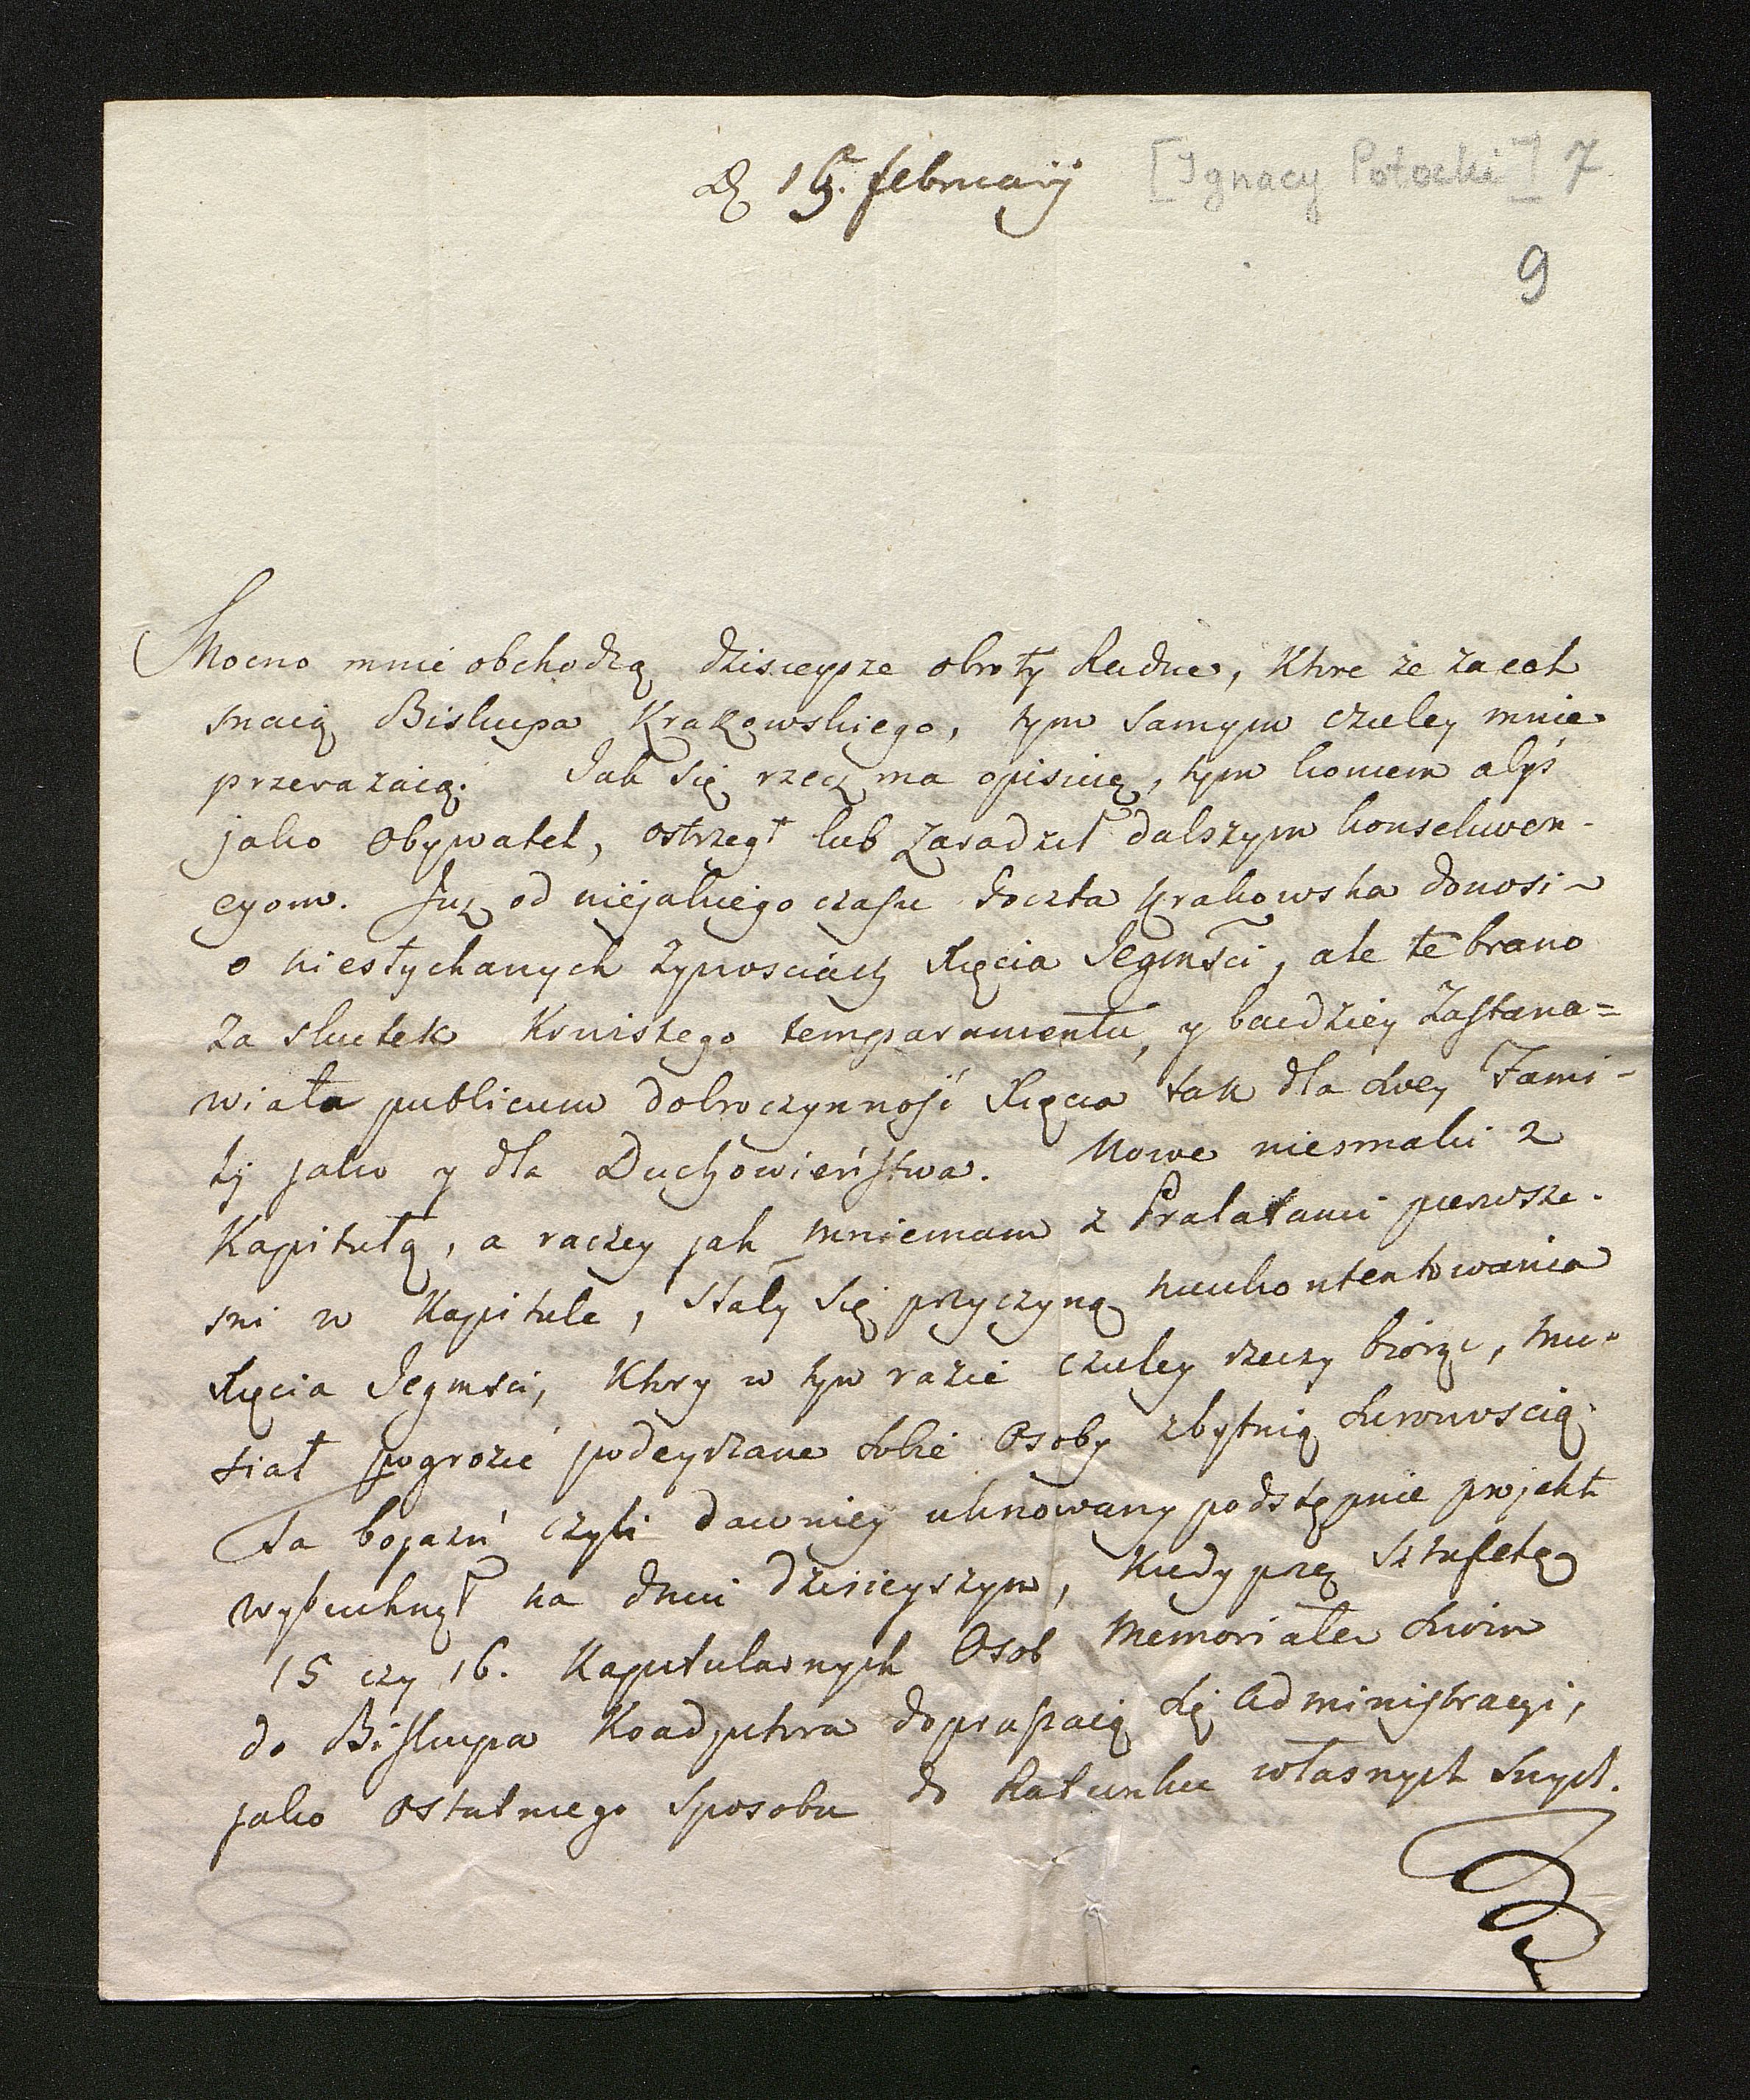 D 15. february [Ignacy Potocki] 7
9
Mocno mnie obchodzą dzisieysze obroty Ludzi, ktore ze zacze
snaią Biskupa Krakowskiego, tym samym czuley mnie
przerazaią. Jak się rzecz ma opisuię, tym koncem abyś
jako Obywatel, ostrzegł lub zaradził dalszym konsekwen-
cyom. Juz od niejakiego czasu Poczta Krakowska donosi
o niesłychanych zywosciach Xięcia Jegmści, ale te brano
za skutek Krwistego temparamentu, y bardziey zastana=
wiała publicum dobroczynność Xięcia tak dla swey Fami-
lij jako y dla Duchowieństwa. Nowe niesmaki z
Kapitułą, a raczey jak mniemam z Prałatami pierwsze-
mi w Kapitule, stały się przyczyną nieukontentowania
Xięcia Jegmści, ktory w tym razie czuley rzeczy biorąc, mu-
siał pogrozić podeyrzane sobie Osoby zbytnią surowością.
Ta bojazń czyli dawniey uknowany podstępnie projekt
wybuchnął na dniu dzisieyszym, kiedy przez Sztafetę
15 czy 16. Kapitularnych Osob Memoriałem swoim
do Biskupa Koadjutora dopraszaią się Administracyi,
jako ostatniego sposobu do Ratunku własnych swych.